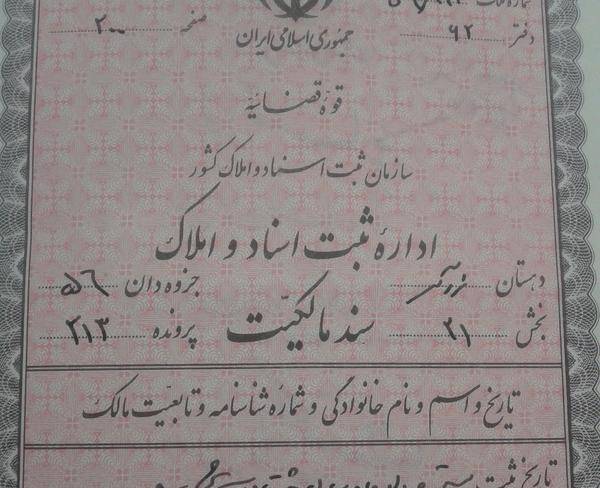 شماره ملک
دفتر ۹۲ صفحه ۲۰۰
جمهوری اسلامی ایران
قوهٔ قضائیه
سازمان ثبت اسناد و املاک کشور
ادارهٔ ثبت اسناد و املاک
دبستان جزوه دان ۵۶
بخش ۲۱ سند مالکیت پرونده ۳۱۳
تاریخ و اسم و نام خانوادگی و شماره شناسنامه و تابعیت مالک
تاریخ ثبت